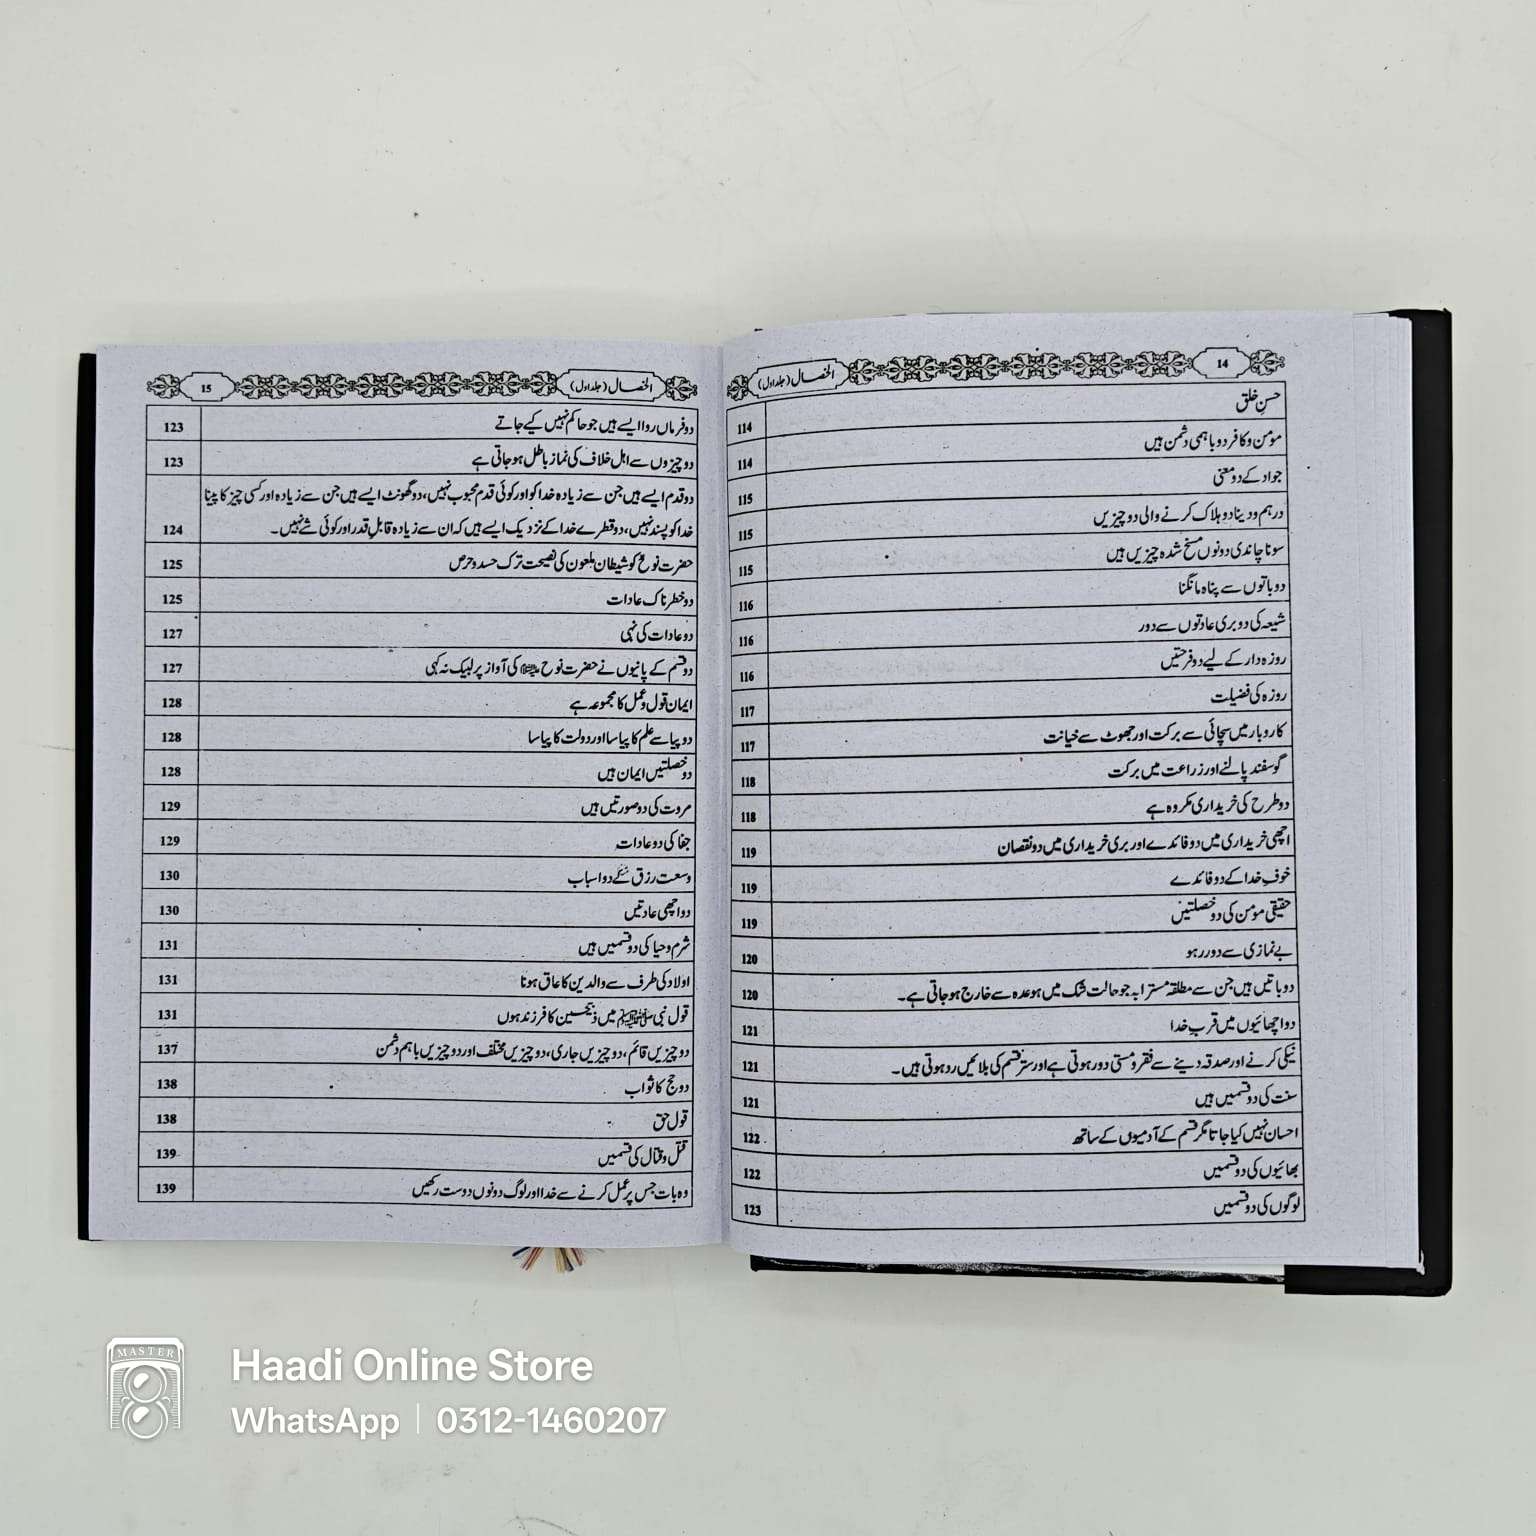 14
الخصال (جلد اول)
حسنِ خلق 114
مومن و کافر دو باہمی دشمن ہیں 114
جواد کے دو معنی 115
درہم و دینار دو ہلاک کرنے والی دو چیزیں 115
سونا چاندی دونوں مسخ شدہ چیزیں ہیں 115
دو باتوں سے پناہ مانگنا 116
شیعہ کی دو بری عادتوں سے دور 116
روزہ دار کے لیے دو فرحتیں 116
روزہ کی فضیلت 117
کاروبار میں سچائی سے برکت اور جھوٹ سے خیانت 117
گوسفند پالنے اور زراعت میں برکت 118
دو طرح کی خریداری مکروہ ہے 118
اچھی خریداری میں دو فائدے اور بری خریداری میں دو نقصان 119
خوفِ خدا کے دو فائدے 119
حقیقی مومن کی دو خصلتیں 119
بے نمازی سے دور رہو 120
دو باتیں ہیں جن سے مطلقہ مسترابہ جو حالت شک میں ہو عدہ سے خارج ہو جاتی ہے۔ 120
دو اچھائیوں میں قربِ خدا 121
نیکی کرنے اور صدقہ دینے سے فقر و مستی دور ہوتی ہے اور ستر قسم کی بلائیں رد ہوتی ہیں۔ 121
سنت کی دو قسمیں ہیں 121
احسان نہیں کیا جاتا مگر قسم کے آدمیوں کے ساتھ 122
بھائیوں کی دو قسمیں 122
لوگوں کی دو قسمیں 123
الخصال (جلد اول)
15
دو فرماں روا ایسے ہیں جو حاکم نہیں کیے جاتے 123
دو چیزوں سے اہل خلاف کی نماز باطل ہو جاتی ہے 123
دو قدم ایسے ہیں جن سے زیادہ خدا کو اور کوئی قدم محبوب نہیں، دو گھونٹ ایسے ہیں جن سے زیادہ اور کسی چیز کا پینا
خدا کو پسند نہیں، دو قطرے خدا کے نزدیک ایسے ہیں کہ ان سے زیادہ قابلِ قدر اور کوئی شے نہیں۔ 124
حضرت نوحؑ کو شیطان ملعون کی نصیحت ترک حسد و حرص 125
دو خطرناک عادات 125
دو عادات کی نہی 127
دو قسم کے پانیوں نے حضرت نوح کی آواز پر لبیک نہ کہی 127
ایمان قول و عمل کا مجموعہ ہے 128
دو پیاسے علم کا پیاسا اور دولت کا پیاسا 128
دو خصلتیں ایمان ہیں 128
مروت کی دو صورتیں ہیں 129
جفا کی دو عادات 129
وسعت رزق کے دو اسباب 130
دو اچھی عادتیں 130
شرم و حیا کی دو قسمیں ہیں 131
اولاد کی طرف سے والدین کا عاق ہونا 131
قول نبی ﷺ میں ذبیحین کا فرزند ہوں 131
دو چیزیں قائم، دو چیزیں جاری، دو چیزیں مختلف اور دو چیزیں باہم دشمن 137
دو حج کا ثواب 138
قول حق 138
قتل و قتال کی قسمیں 139
وہ بات جس پر عمل کرنے سے خدا اور لوگ دونوں دوست رکھیں 139
MASTER
Haadi Online Store
WhatsApp | 0312-1460207